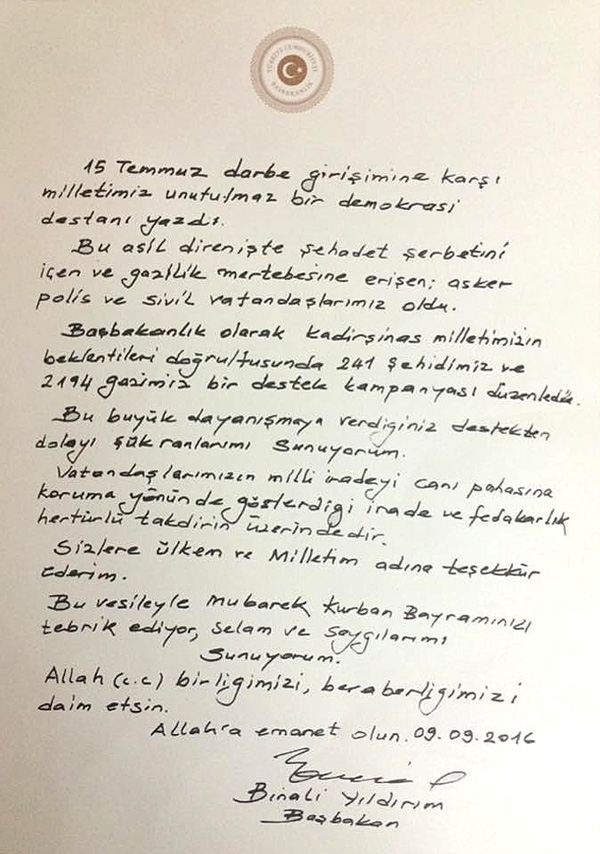 TÜRKİYE CUMHURİYETİ
BAŞBAKANLIK
15 Temmuz darbe girişimine karşı
milletimiz unutulmaz bir demokrasi
destanı yazdı.
Bu asil direnişte şehadet şerbetini
içen ve gazilik mertebesine erişen; asker
polis ve sivil vatandaşlarımız oldu.
Başbakanlık olarak kadirşinas milletimizin
beklentileri doğrultusunda 241 şehidimiz ve
2194 gazimiz bir destek kampanyası düzenledik.
Bu büyük dayanışmaya verdiginiz destekten
dolayı şükranlarımı sunuyorum.
Vatandaşlarımızın milli iradeyi canı pahasına
koruma yönünde gösterdigi irade ve fedakarlık
hertürlü takdirin üzerindedir.
Sizlere ülkem ve Milletim adına teşekkür
ederim.
Bu vesileyle mubarek Kurban Bayramınızı
tebrik ediyor, selam ve saygılarımı
sunuyorum.
Allah (c.c) birligimizi, beraberligimizi
daim etsin.
Allah'a emanet olun. 09.09.2016
Binali Yıldırım
Başbakan